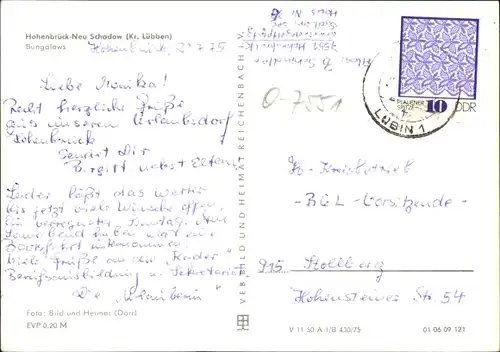 Hohenbrück-Neu Schadow (Kr. Lübben)
Bungalows
Hohenbrück, 2.7.75
Liebe Monika!
Recht herzliche Grüße
aus unserem Urlaubsdorf
Hohenbrück
sendet Dir
Birgitt nebst Eltern.
Leider läßt das Wetter
bis jetzt viele Wünsche offen.
Ein verregneter Sonntag. Am
Sonnabend haben wir eine
unternommen.
Viele Grüße an die "Kinder"
Berufsausbildung u. Sekretariat
Die
Foto: Bild und Heimat (Dörr)
EVP 0,20 M
VEB BILD UND HEIMAT REICHENBACH (VOGTL)
7551 Hohenbrück
O-7551
PLAUENER
SPITZE
10 DDR
LÜBBEN 1
Kreisbetrieb
- BGL - Vorsitzende -
915 Stollberg
Hohensteiner Str. 54
V 11 50 A 1/B 430/75
01 06 09 121